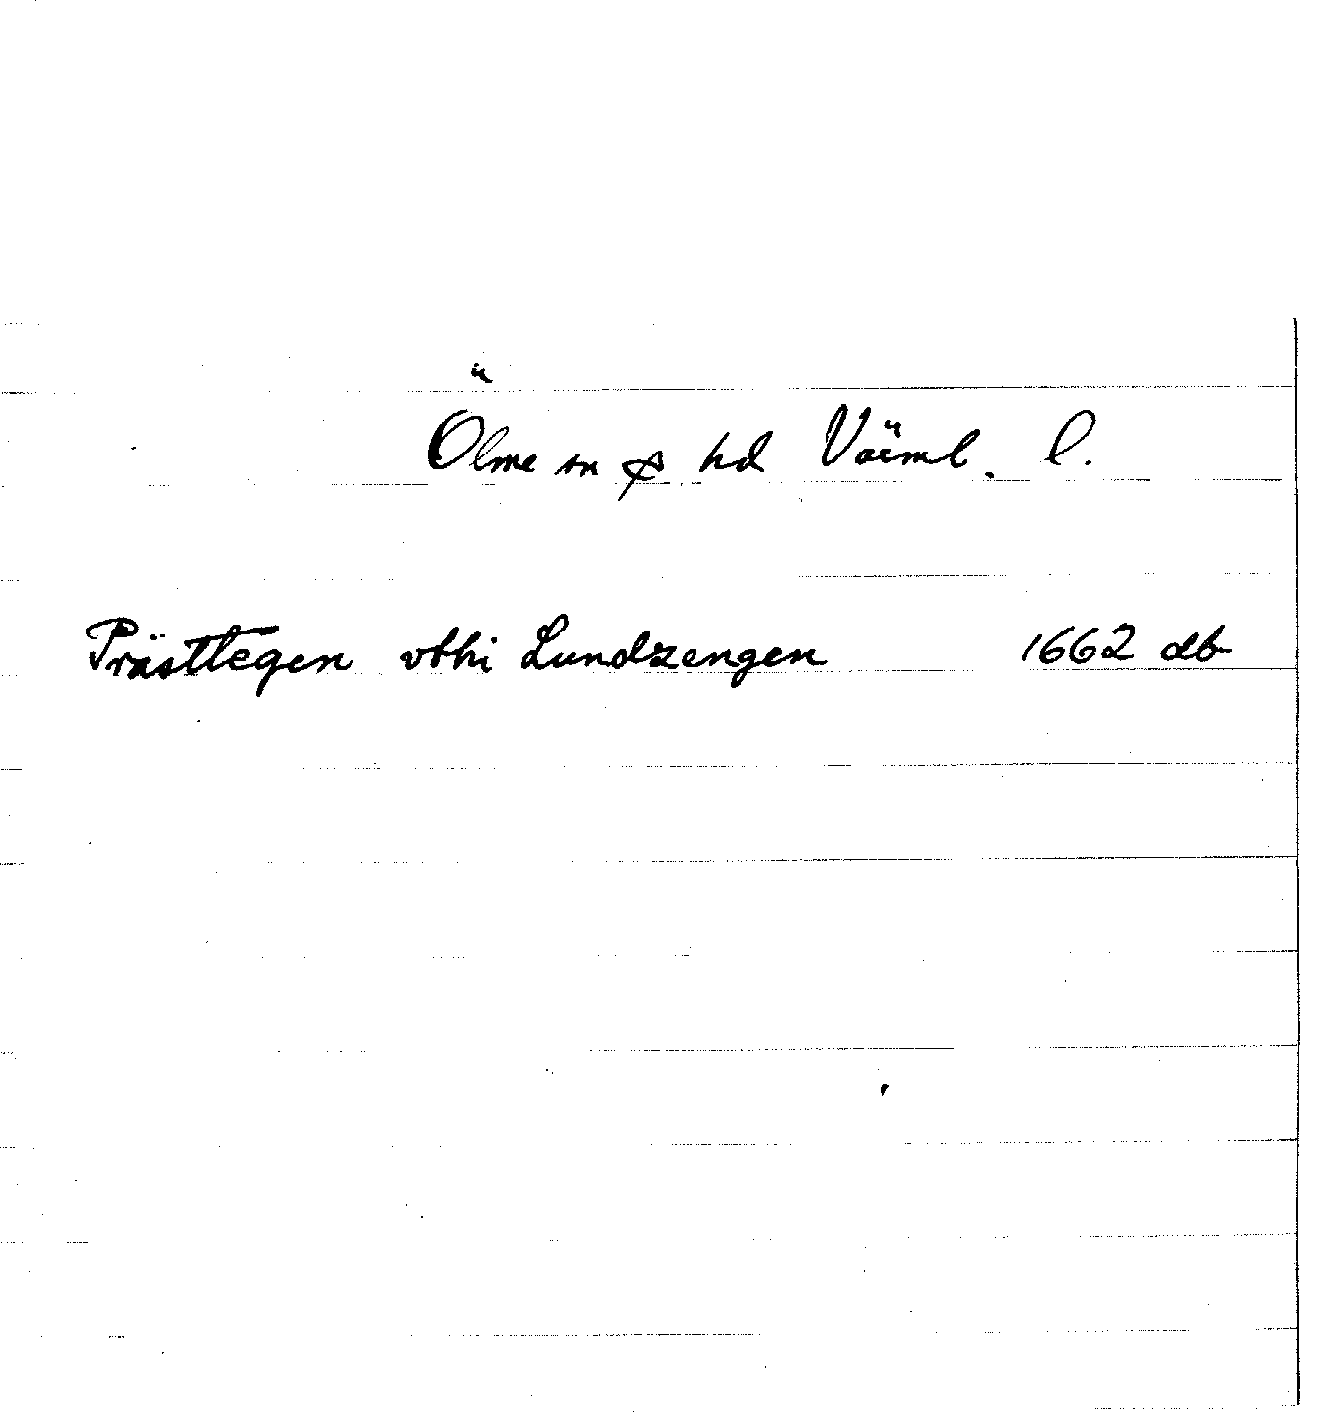 Ölme sn & hd Värml. l.
Prästtegen vthi Lundzengen 1662 db